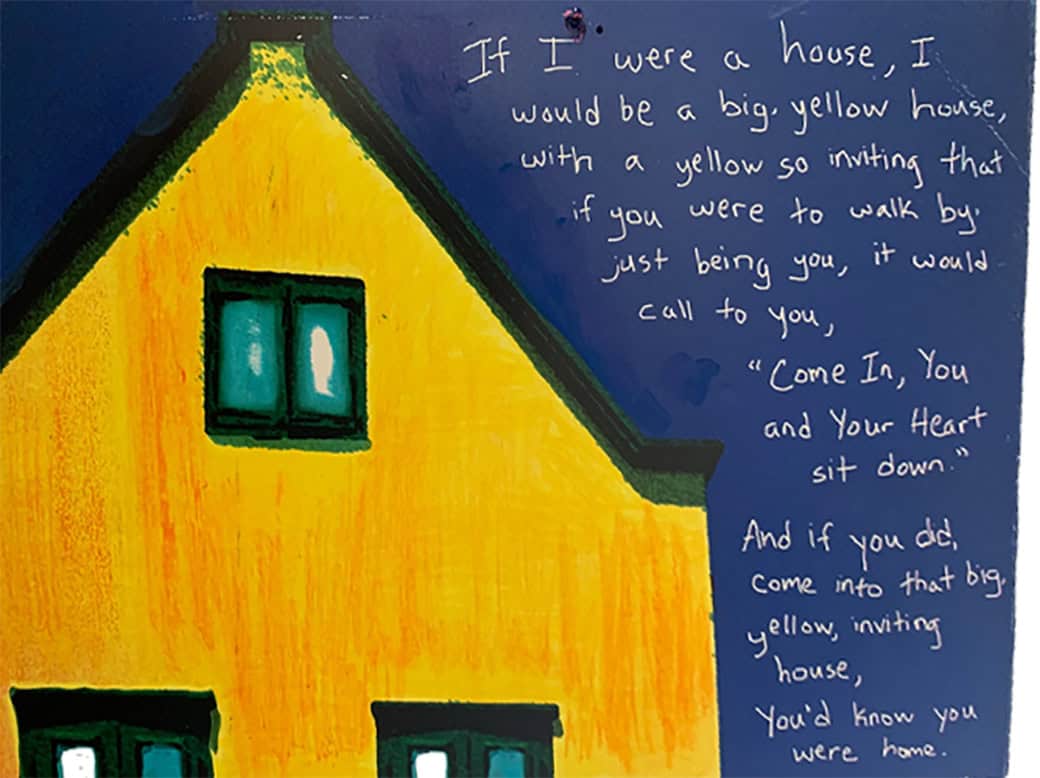 If I were a house, I
would be a big, yellow house,
with a yellow so inviting that
if you were to walk by,
just being you, it would
call to you,
“Come In, You
and Your Heart
sit down.”
And if you did,
come into that big,
yellow, inviting
house,
You'd know you
were home.